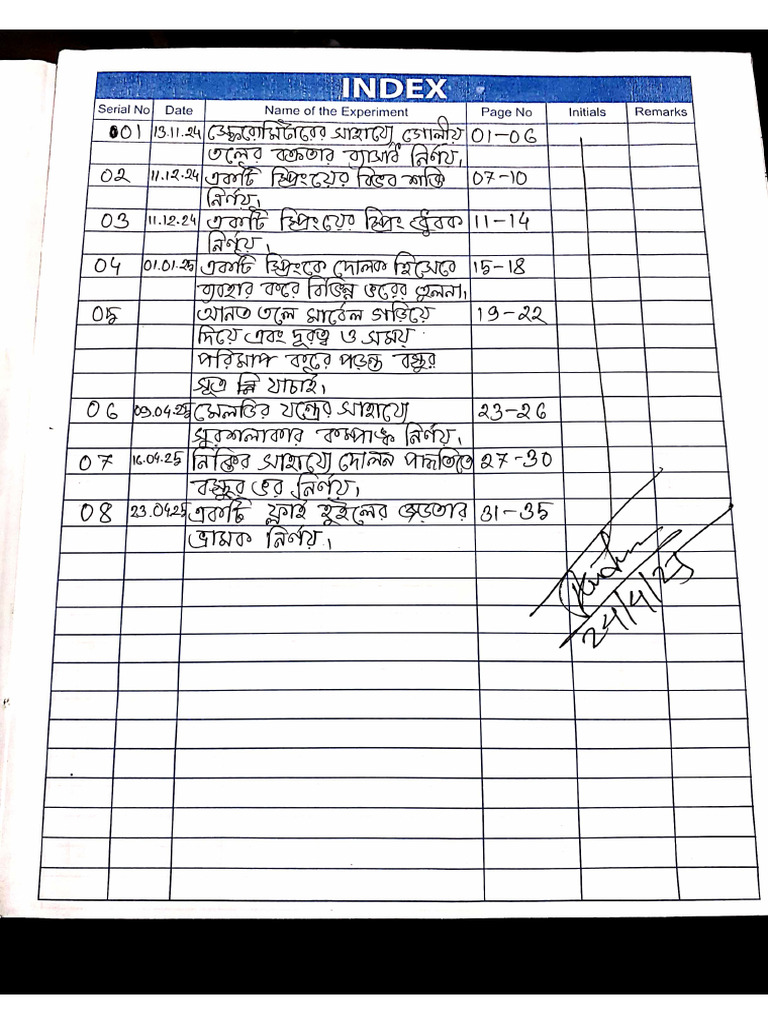 INDEX
Serial No Date Name of the Experiment Page No Initials Remarks
001 13.11.24 স্ফেরোমিটারের সাহায্যে গোলীয় 01-06
তলের বক্রতার ব্যাসার্ধ নির্ণয়।
02 11.12.24 একটি স্প্রিংয়ের বিভব শক্তি 07-10
নির্ণয়।
03 11.12.24 একটি স্প্রিংয়ের স্প্রিং ধ্রুবক 11-14
নির্ণয়।
04 01.01.25 একটি স্প্রিংকে দোলক হিসেবে 15-18
ব্যবহার করে বিভিন্ন ভরের তুলনা।
05 আনত তলে মার্বেল গড়িয়ে 19-22
দিয়ে এবং দূরত্ব ও সময়
পরিমাপ করে পড়ন্ত বস্তুর
সূত্র যাচাই।
06 09.04.25 মেলডির যন্ত্রের সাহায্যে 23-26
সুরশলাকার কম্পাঙ্ক নির্ণয়।
07 16.04.25 নিক্তির সাহায্যে দোলন পদ্ধতিতে 27-30
বস্তুর ভর নির্ণয়।
08 23.04.25 একটি ফ্লাই হুইলের জড়তার 31-35
ভ্রামক নির্ণয়।
24/4/25